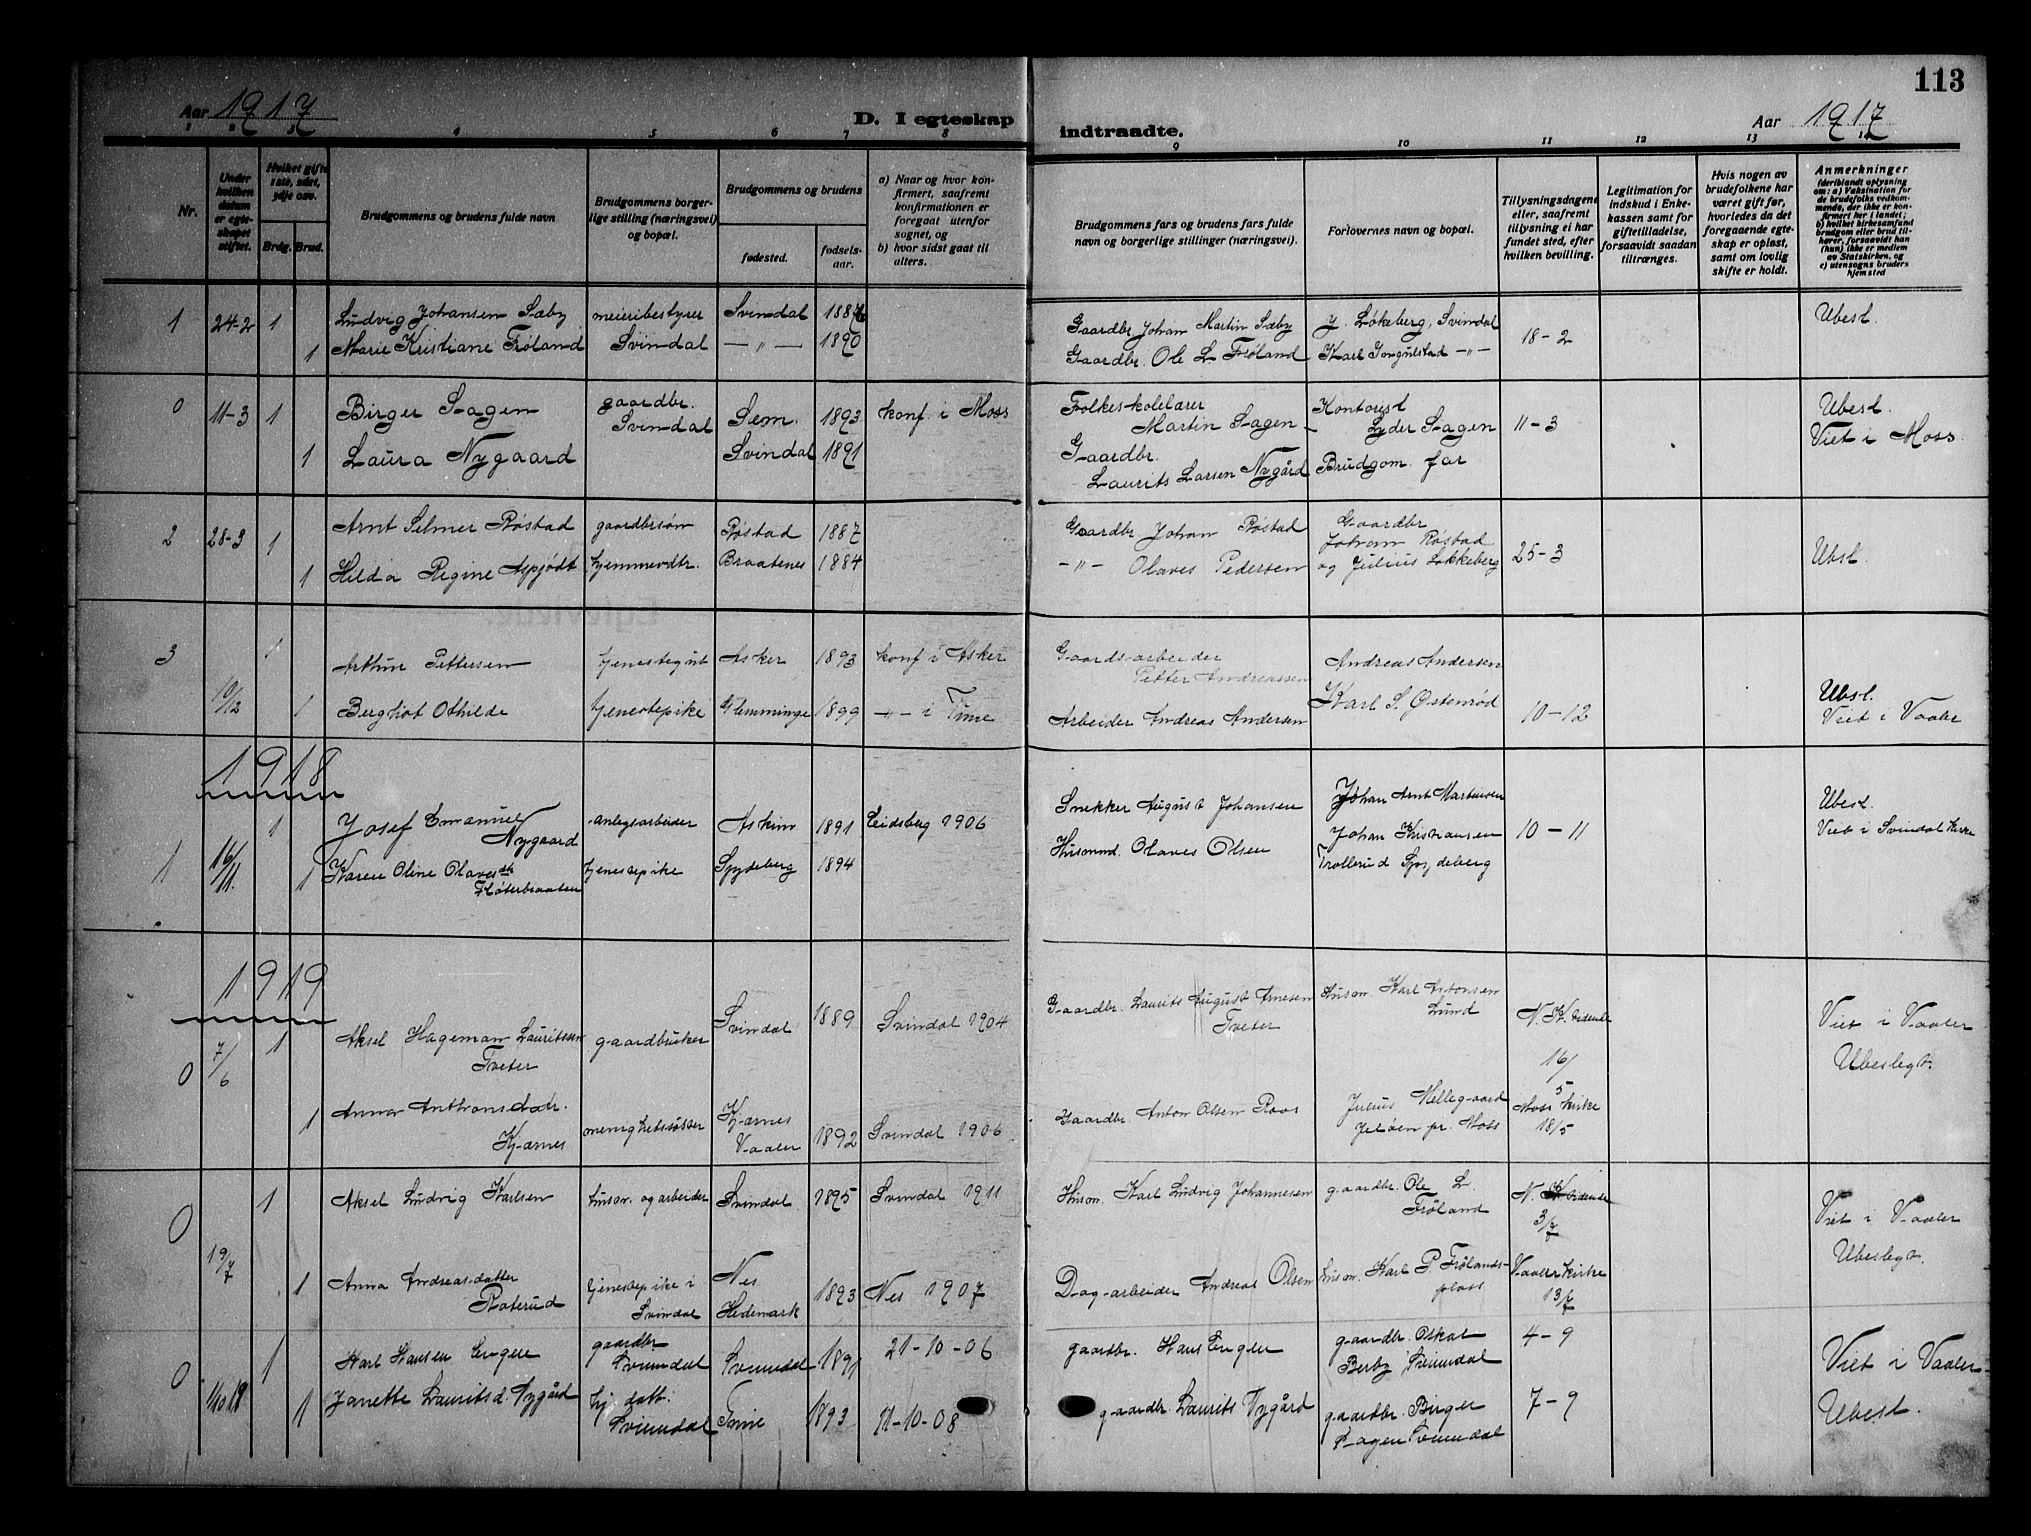 113
Aar 1917
D. I egteskap
indtraadte.
Aar 1917
1 2 3 4 5 6 7 8 9 10 11 12 13 14
Nr.
Under hvilken datum er egteskapet stiftet.
Hvilket gifte 1ste, 2det, 3dje osv.
Brdg. Brud.
Brudgommens og brudens fulde navn
Brudgommens borgerlige stilling (næringsvei) og bopæl.
Brudgommens og brudens
fødested.
fødselsaar.
a) Naar og hvor konfirmert, saafremt konfirmationen er foregaat utenfor sognet, og
b) hvor sidst gaat til alters.
Brudgommens fars og brudens fars fulde navn og borgerlige stillinger (næringsvei).
Forlovernes navn og bopæl.
Tillysningsdagene eller, saafremt tillysning ei har fundet sted, efter hvilken bevilling.
Legitimation for indskud i Enkekassen samt for giftetilladelse, forsaavidt saadan tiltrænges.
Hvis nogen av brudefolkene har været gift før, hvorledes da det foregaaende egteskap er opløst, samt om lovlig skifte er holdt.
Anmerkninger
(deriblandt oplysning om: a) Vaksination for de brudefolks vedkommende, der ikke er konfirmert her i landet; b) hvilket kirkesamfund brudgom eller brud tilhører, forsaavidt han (hun) ikke er medlem av Statskirken, og c) utensogns bruders hjemsted
1 24-2 1 Ludvig Johansen Sæby meieribestyrer Svindal 1887 Gaardbr Johan Martin Sæby J. Løkeberg, Svindal 18-2 Ubesl.
1 Marie Kristiane Frøland Svindal —"— 1890 Gaardbr. Ole L. Frøland Karl Ingulstad —"—
0 11-3 1 Birger Sagen gaardbr. Svindal Sem. 1893 konf. i Moss Folkeskolelærer Martin Sagen Kontorist Lyder Sagen 11-3 Ubesl. Viet i Moss
1 Laura Nygaard Svindal 1891 Gaardbr. Laurits Larsen Nygård Brudgom. far
2 28-3 1 Arnt Selmer Røstad gaardbrsøn Røstad 1887 Gaardbr Johan Røstad Gaardbr Johan Røstad 25-3 Ubsl.
1 Hilda Regine Aspjødt hjemmevdtr. Braatenes 1884 —"— Olaves Pedersen og Julius Løkkeberg
3 1 Arthur Pettersen tjenestegut Asker 1893 konf i Asker Gaardsarbeider Petter Andreassen Andreas Andersen
10/12 1 Berghot Othilde tjenestepike Glemminge 1899 —"— i Tune Arbeider Andreas Andersen Karl S. Østenrød 10-12 Ubsl. Viet i Vaaler
1918
1 Josef Emanuel Nygaard anlegsarbeider Askim 1891 Eidsberg 1906 Snekker August Johansen Johan Arnt Martinsen 10-11 Ubesl.
1 16/11. 1 Karen Oline Olavesdtr Fløterbraaten tjenestepike Spydeberg 1894 Husmnd. Olaves Olsen Johan Kristiansen Trollerud Spydeberg Viet i Svindal Kirke
1919
0 7/6 1 Aksel Hageman Lauritssen Tveter gaardbruker Svindal 1889 Svindal 1904 Gaardbr. Laurits August Arnesen Tveter Husm. Karl Antonsen Lund N. K. Sidende 16/5 Viet i Vaaler Ubeslegt.
1 Anna Anthonsdatr. Kjærnes menighetssøster Kjærnes Vaaler 1892 Svindal 1906 Gaardbr. Anton Olsen Roos Julius Mellegaard Jeløen pr. Moss Moss Kirke 18/5
0 1 Aksel Ludvig Karlsen husm. og arbeider Svindal 1895 Svindal 1911 Husm. Karl Ludvig Johannesen gaardbr. Ole L. Frøland N. K. Sidende 3/7 Viet i Vaaler
19/7 1 Anna Andreasdatter Raterud tjenestepike i Svindal Nes Hedemark 1893 Nes 1907 Dagarbeider Andreas Olsen husm. Karl P. Frølandsplass Vaaler kirke 13/7 Ubeslegt.
0 1 Karl Hansen Enger gaardbr Svinndal Svinndal 1891 21-10-06 gaardbr. Hans Enger gaardbr. Oskar Berby Svinndal 4-9 Viet i Vaaler
1/10 19 1 Janette Lauritsd. Nygård hj. datt. Svinndal Tune 1893 11-10-08 gaardbr. Laurits Nygård gaardbr. Birger Sagen Svinndal 7-9 Ubesl.